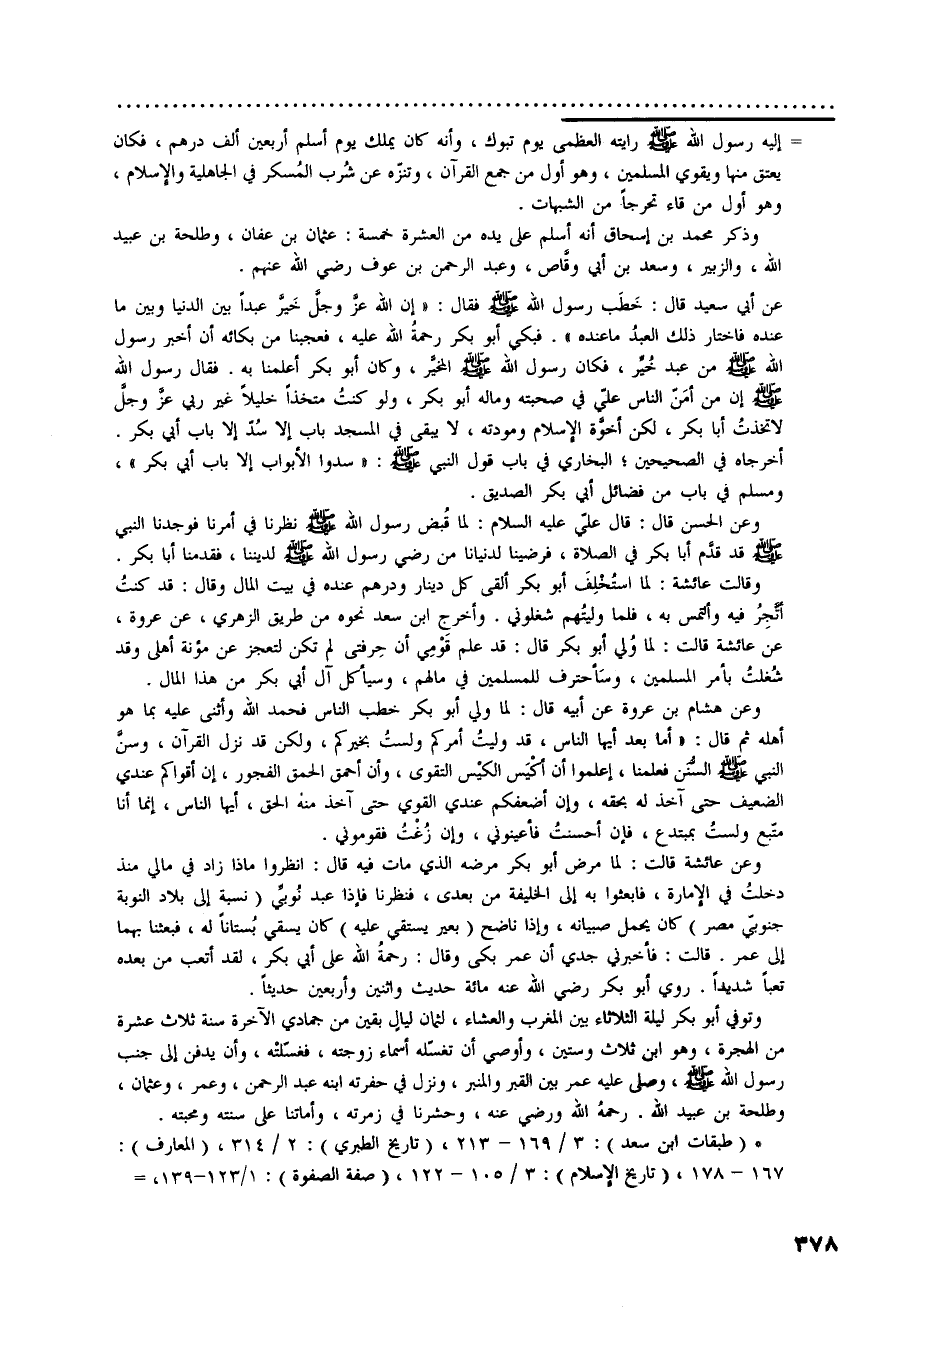 = إليه رسول الله ﷺ رايته العظمى يوم تبوك ، وأنه كان يملك يوم أسلم أربعين ألف درهم ، فكان
يعتق منها ويقوي المسلمين ، وهو أول من جمع القرآن ، وتنزّه عن شُرب المُسكر في الجاهلية والإسلام ،
وهو أول من قاء تحرجاً من الشبهات .
وذكر محمد بن إسحاق أنه أسلم على يده من العشرة خمسة : عثمان بن عفان ، وطلحة بن عبيد
الله ، والزبير ، وسعد بن أبي وقَّاص ، وعبد الرحمن بن عوف رضي الله عنهم .
عن أبي سعيد قال : خَطَب رسول الله ﷺ فقال : « إن الله عزَّ وجلَّ خَيَّر عبداً بين الدنيا وبين ما
عنده فاختار ذلك العبدُ ماعنده » . فبكى أبو بكر رحمةُ الله عليه ، فعجبنا من بكائه أن أخبر رسول
الله ﷺ من عبد خُيِّر ، فكان رسول الله ﷺ المخيَّر ، وكان أبو بكر أعلمنا به . فقال رسول الله
ﷺ إن من أمَنّ الناس عليّ في صحبته وماله أبو بكر ، ولو كنتُ متخذاً خليلاً غير ربي عزَّ وجلَّ
لاتخذتُ أبا بكر ، لكن أخوَّة الإسلام ومودته ، لا يبقى في المسجد باب إلا سُدّ إلا باب أبي بكر .
أخرجاه في الصحيحين ؛ البخاري في باب قول النبي ﷺ : « سدوا الأبواب إلا باب أبي بكر » ،
ومسلم في باب من فضائل أبي بكر الصديق .
وعن الحسن قال : قال عليّ عليه السلام : لما قُبض رسول الله ﷺ نظرنا في أمرنا فوجدنا النبي
ﷺ قد قدَّم أبا بكر في الصلاة ، فرضينا لدنيانا من رضي رسول الله ﷺ لديننا ، فقدمنا أبا بكر .
وقالت عائشة : لما استُخْلِفَ أبو بكر ألقى كل دينار ودرهم عنده في بيت المال وقال : قد كنتُ
أتَّجِرُ فيه وألتمس به ، فلما وليتُهم شغلوني . وأخرج ابن سعد نحوه من طريق الزهري ، عن عروة ،
عن عائشة قالت : لما وُلي أبو بكر قال : قد علم قَوْمِي أن حِرفتى لم تكن لتعجز عن مؤنة أهلى وقد
شُغلتُ بأمر المسلمين ، وسَأحترف للمسلمين في مالهم ، وسيأكل آل أبي بكر من هذا المال .
وعن هشام بن عروة عن أبيه قال : لما ولي أبو بكر خطب الناس فحمد الله وأثنى عليه بما هو
أهله ثم قال : « أما بعد أيها الناس ، قد وليتُ أمركم ولستُ بخيركم ، ولكن قد نزل القرآن ، وسنَّ
النبي ﷺ السُّنَن فعلمنا ، إعلموا أن أكْيَس الكيْس التقوى ، وأن أحمق الحمق الفجور ، إن أقواكم عندي
الضعيف حتى آخذ له بحقه ، وإن أضعفكم عندي القوي حتى آخذ منهُ الحق ، أيها الناس ، إنما أنا
متّبع ولستُ بمبتدع ، فإن أحسنتُ فأعينوني ، وإن زُغْتُ فقوموني .
وعن عائشة قالت : لما مرض أبو بكر مرضه الذي مات فيه قال : انظروا ماذا زاد في مالي منذ
دخلتُ في الإمارة ، فابعثوا به إلى الخليفة من بعدى ، فنظرنا فإذا عبد نُوبيِّ ( نسبة إلى بلاد النوبة
جنوبيّ مصر ) كان يحمل صبيانه ، وإذا ناضح ( بعير يستقي عليه ) كان يسقي بُستاناً له ، فبعثنا بهما
إلى عمر . قالت : فأخبرني جدي أن عمر بكى وقال : رحمةُ الله على أبي بكر ، لقد أتعب من بعده
تعباً شديداً . روي أبو بكر رضي الله عنه مائة حديث واثنين وأربعين حديثاً .
وتوفي أبو بكر ليلة الثلاثاء بين المغرب والعشاء ، لثمان ليالٍ بقين من جمادي الآخرة سنة ثلاث عشرة
من الهجرة ، وهو ابن ثلاث وستين ، وأوصي أن تغسّله أسماء زوجته ، فغسّلتْه ، وأن يدفن إلى جنب
رسول الله ﷺ ، وصلى عليه عمر بين القبر والمنبر ، ونزل في حفرته ابنه عبد الرحمن ، وعمر ، وعثمان ،
وطلحة بن عبيد الله . رحمهُ الله ورضي عنه ، وحشرنا في زمرته ، وأماتنا على سنته ومحبته .
٥ ( طبقات ابن سعد ) : ٣ / ١٦٩ – ٢١٣ ، ( تاريخ الطبري ) : ٢ / ٣١٤ ، ( المعارف ) :
١٦٧ – ١٧٨ ، ( تاريخ الإسلام ) : ٣ / ١٠٥ – ١٢٢ ، ( صفة الصفوة ) : ١/١٢٣–١٣٩، =
٣٧٨